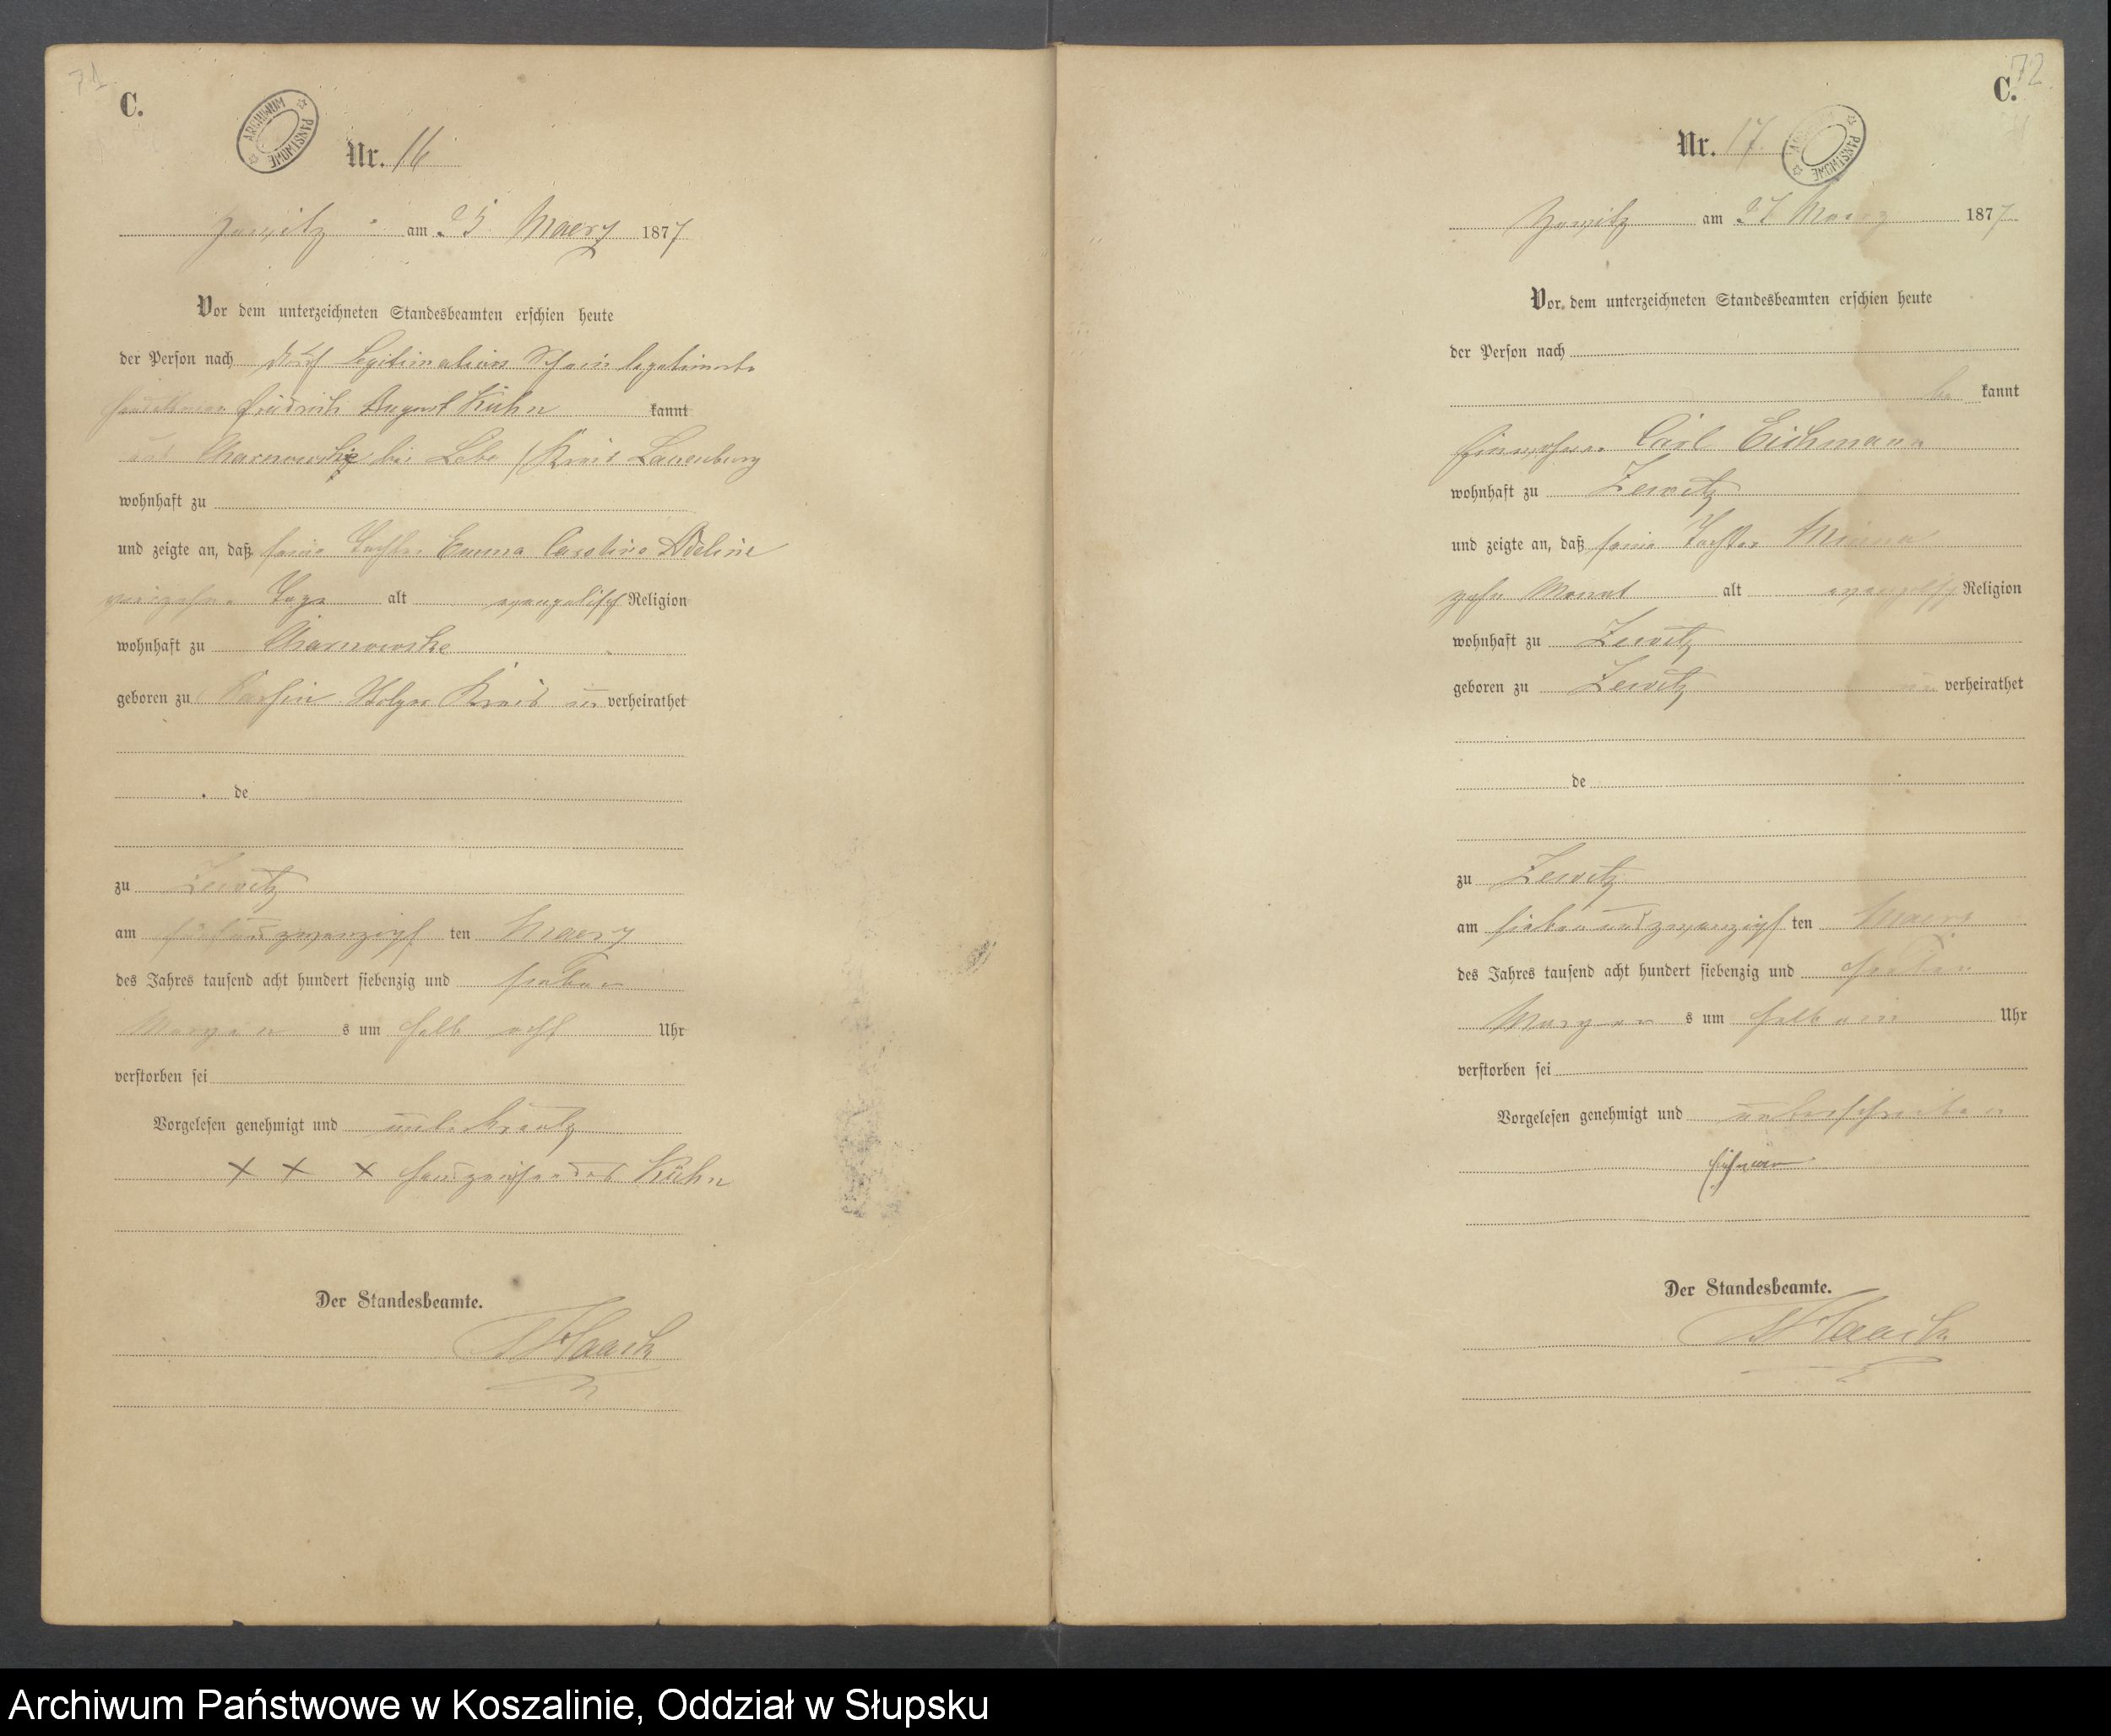 71
C.
ARCHIWUM PAŃSTWOWE
Nr. 16
am 25 Maerz 1877
Vor dem unterzeichneten Standesbeamten erschien heute
der Person nach durch Legitimations Schein legitimirte
Friedrich August Kühn kannt
aus Charnowske bei Leba / Kreis Lauenburg
wohnhaft zu
und zeigte an, daß seine Tochter Emma Caroline Adeline
Tage alt evangelisch Religion
wohnhaft zu Charnowske
geboren zu Stolper Kreis unverheirathet
de
zu Zewitz
am fünfundzwanzigsten Maerz
des Jahres tausend acht hundert siebenzig und sieben
Morgens um halb acht Uhr
verstorben sei
Vorgelesen genehmigt und unterkreutz
X X X Handzeichen des Kühn
Der Standesbeamte.
Haack
72
C.
ARCHIWUM PAŃSTWOWE
Nr. 17
am 27 Maerz 1877
Vor dem unterzeichneten Standesbeamten erschien heute
der Person nach
bekannt
Einwohner Carl Eichmann
wohnhaft zu Zewitz
und zeigte an, daß seine Tochter Minna
zehn Monat alt evangelisch Religion
wohnhaft zu Zewitz
geboren zu Zewitz unverheirathet
de
zu Zewitz
am siebenundzwanzigsten Maerz
des Jahres tausend acht hundert siebenzig und sieben
Morgens um halb ein Uhr
verstorben sei
Vorgelesen genehmigt und unterschrieben
Eichmann
Der Standesbeamte.
Haack
Archiwum Państwowe w Koszalinie, Oddział w Słupsku